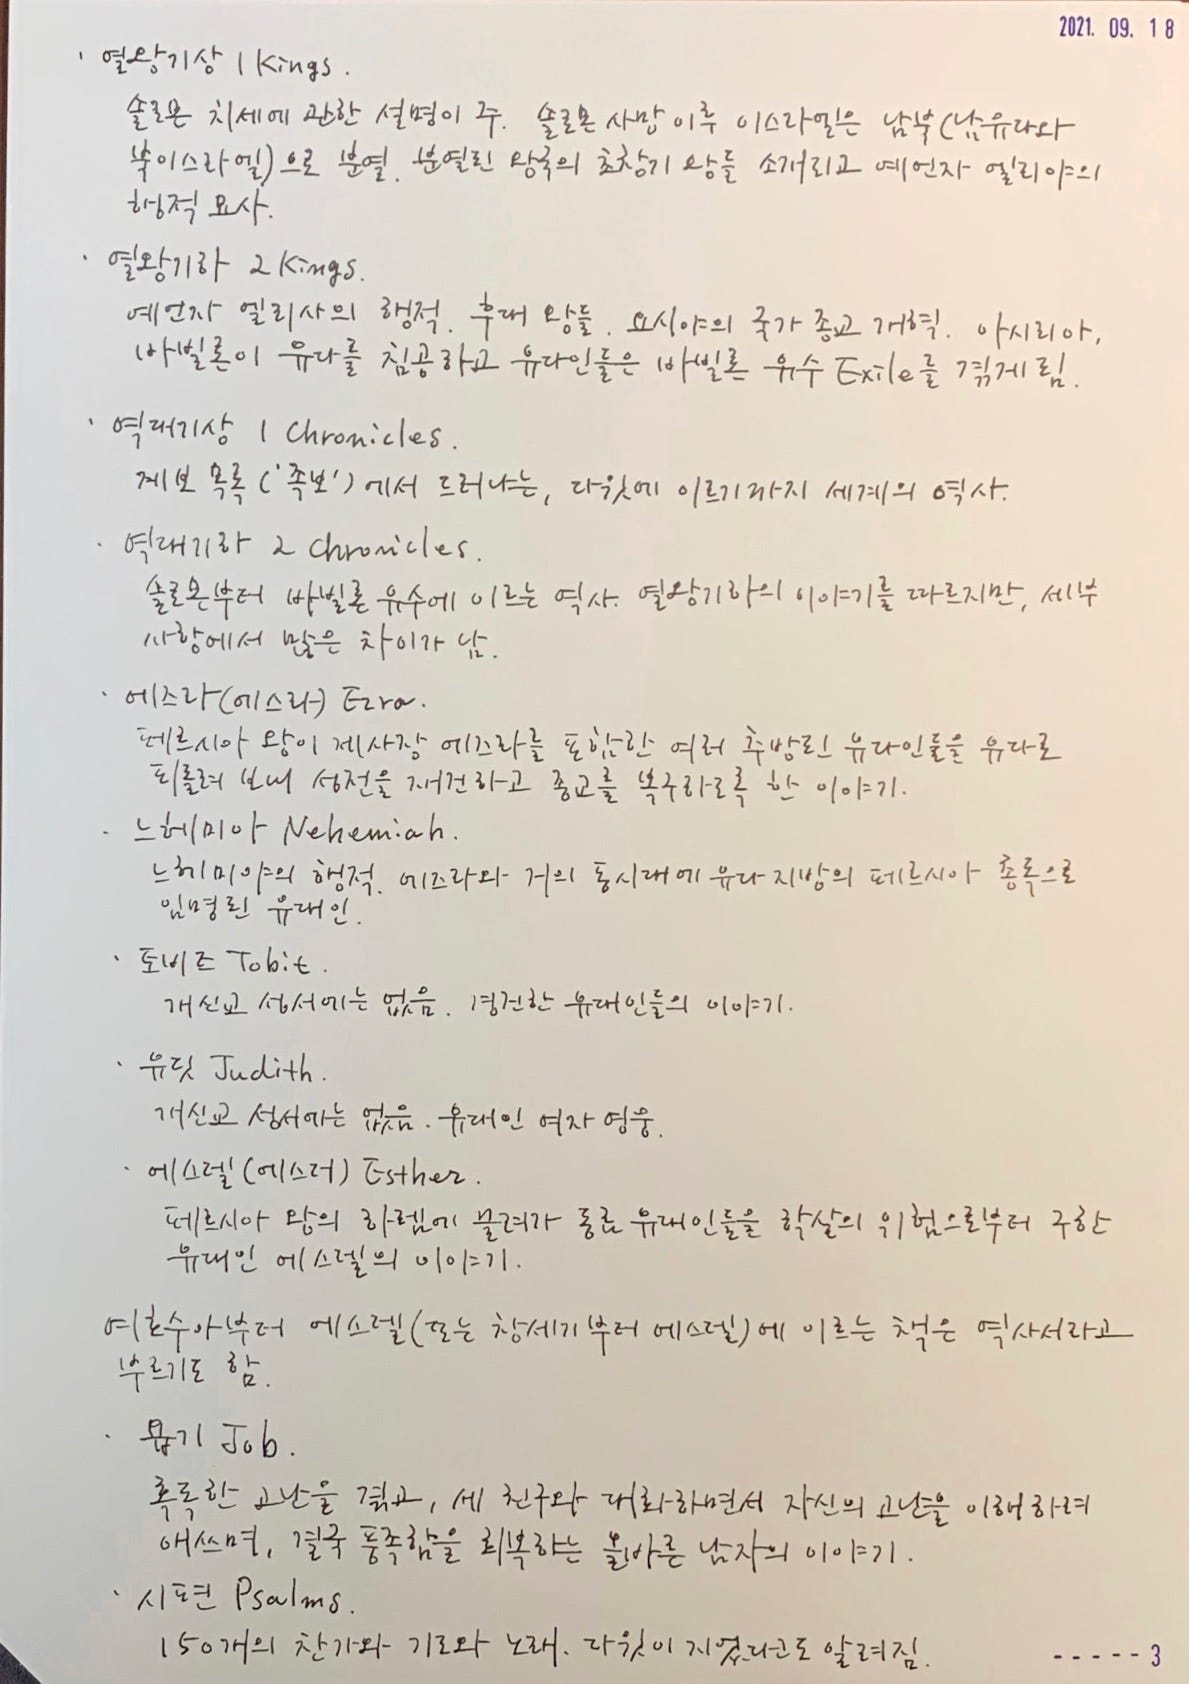 2021. 09. 18
· 열왕기상 1 Kings.
솔로몬 치세에 관한 설명이 주. 솔로몬 사망 이후 이스라엘은 남북(남유다와
북이스라엘)으로 분열. 분열된 왕국의 초창기 왕들 소개되고 예언자 엘리야의
행적 묘사.
· 열왕기하 2 Kings.
예언자 엘리사의 행적. 후대 왕들. 요시야의 국가 종교 개혁. 아시리아,
바빌론이 유다를 침공하고 유다인들은 바빌론 유수 Exile를 겪게 됨.
· 역대기상 1 Chronicles.
계보 목록('족보')에서 드러나는, 다윗에 이르기까지 세계의 역사.
· 역대기하 2 Chronicles.
솔로몬부터 바빌론 유수에 이르는 역사. 열왕기하의 이야기를 따르지만, 세부
사항에서 많은 차이가 남.
· 에즈라(에스라) Ezra.
페르시아 왕이 제사장 에즈라를 포함한 여러 추방된 유다인들을 유다로
되돌려 보내 성전을 재건하고 종교를 복구하도록 한 이야기.
· 느헤미아 Nehemiah.
느헤미야의 행적. 에즈라와 거의 동시대에 유다 지방의 페르시아 총독으로
임명된 유대인.
· 토비트 Tobit.
개신교 성서에는 없음. 경건한 유대인들의 이야기.
· 유딧 Judith.
개신교 성서에는 없음. 유대인 여자 영웅.
· 에스델(에스더) Esther.
페르시아 왕의 하렘에 불려가 동료 유대인들을 학살의 위험으로부터 구한
유대인 에스델의 이야기.
여호수아부터 에스델(또는 창세기부터 에스델)에 이르는 책은 역사서라고
부르기도 함.
· 욥기 Job.
혹독한 고난을 겪고, 세 친구와 대화하면서 자신의 고난을 이해하려
애쓰며, 결국 풍족함을 회복하는 올바른 남자의 이야기.
· 시편 Psalms.
150개의 찬가와 기도와 노래. 다윗이 지었다고도 알려짐.
-----3